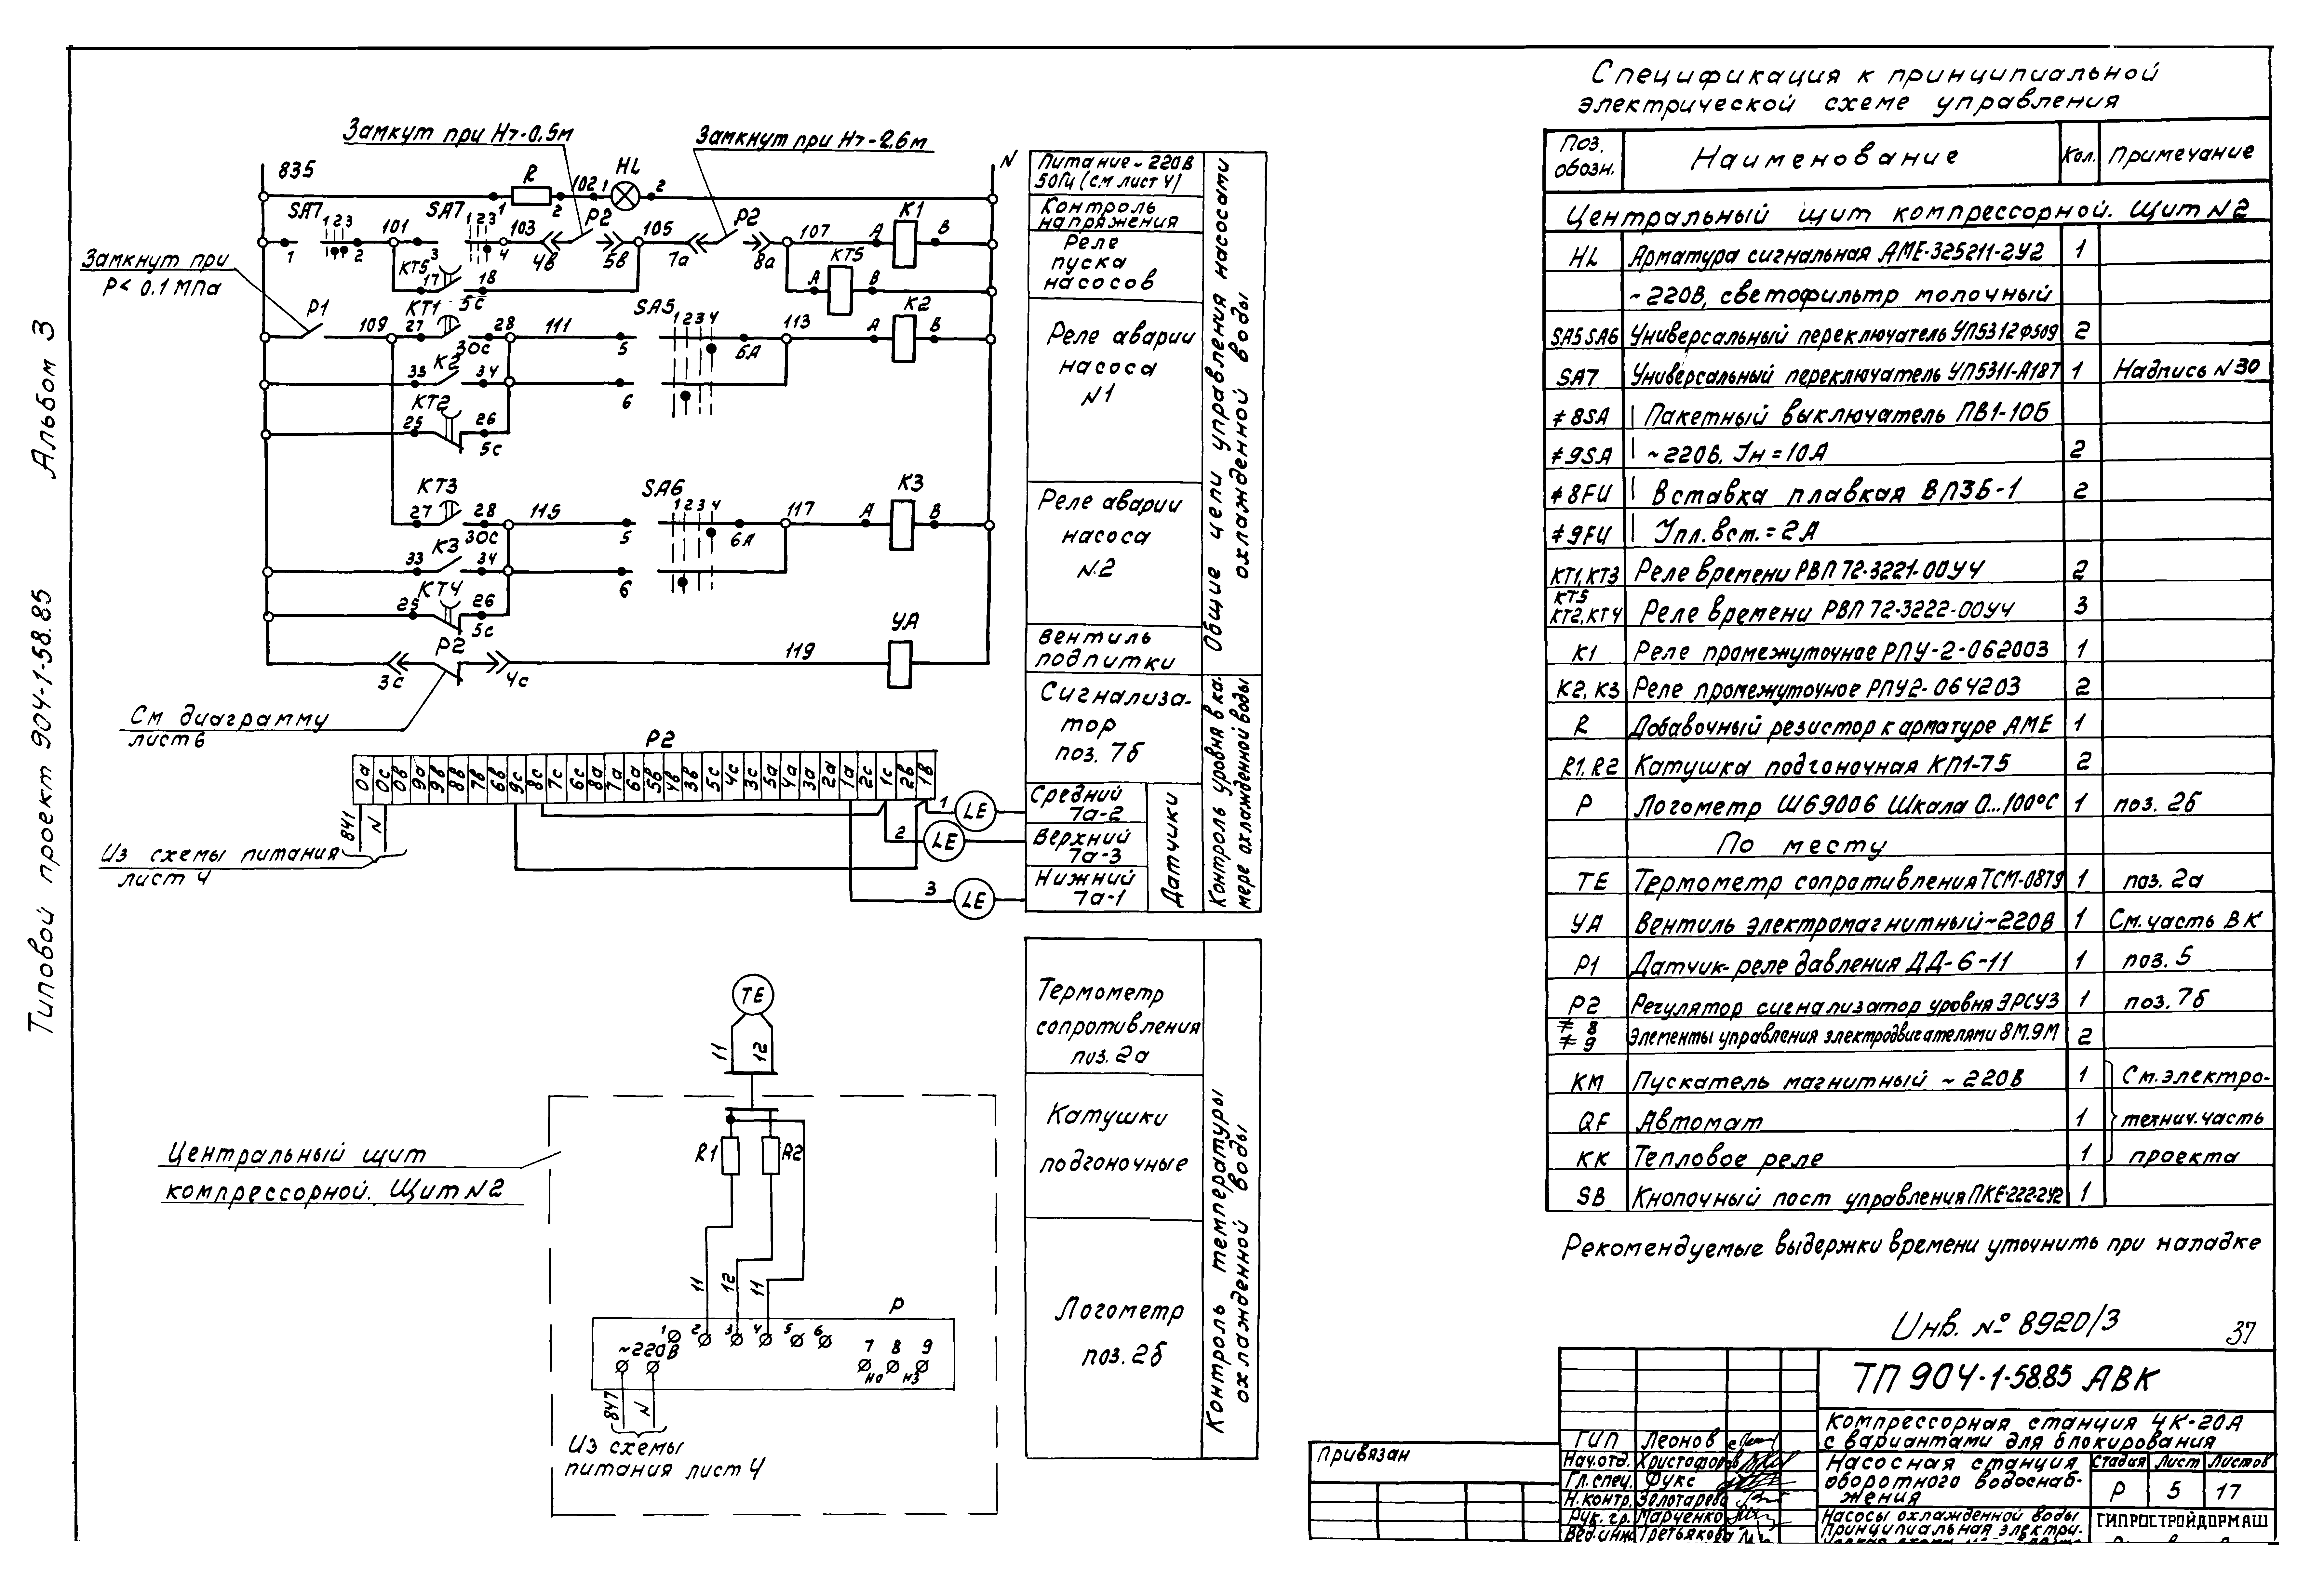 Альбом 3
Типовой проект 904-1-58.85
Замкут при Н>-0.5м
Замкнут при Н>-2.6м
835
N
R
HL
1
2
102
1
2
SA7
SA7
1 2 3
1 2 3
101
103
P2
105
P2
107
K1
A
B
1
2
3
4
4в
5в
7а
8а
KT5
17
18
5с
KT5
A
B
Замкнут при
Р< 0.1 МПа
P1
109
KT1
27
28
30с
111
SA5
1 2 3 4
5
6А
113
K2
A
B
K2
33
34
6
KT2
25
26
5с
KT3
27
28
30с
115
SA6
1 2 3 4
5
6А
117
K3
A
B
K3
33
34
6
KT4
25
26
5с
P2
3с
4с
119
УА
См диаграмму
лист 6
P2
0а 0с 0в 9а 9в 8в 7в 6в 9с 8с 7с 6с 8а 7а 6а 5в 4в 3в 5с 4с 3с 5а 4а 3а 2а 1а 2с 1с 2в 1в
841
N
Из схемы питания
лист 4
1
LE
2
LE
3
LE
Питание ~ 220В
50Гц (см лист 4)
Контроль
напряжения
Реле
пуска
насосов
Реле аварии
насоса
N1
Реле аварии
насоса
N2
вентиль
подпитки
Общие цепи управления насосами
охлажденной воды
Сигнализа-
тор
поз. 7б
Средний
7а-2
Верхний
7а-3
Нижний
7а-1
Датчики
Контроль уровня в ка-
мере охлажденной воды
TE
11
12
R1
R2
Центральный щит
компрессорной. Щит N2
11
12
11
P
1
2
3
4
5
6
7
8
9
но
нз
~220В
847
N
Из схемы
питания лист 4
Термометр
сопротивления
поз. 2а
Катушки
подгоночные
Логометр
поз. 2б
Контроль температуры
охлажденной воды
Спецификация к принципиальной
электрической схеме управления
Поз. обозн. Наименование Кол. Примечание
Центральный щит компрессорной. Щит N2
HL Арматура сигнальная АМЕ-325211-2У2 1
~220В, светофильтр молочный
SA5 SA6 Универсальный переключатель УП5312Ф509 2
SA7 Универсальный переключатель УП5311-А187 1 Надпись N30
≠8SA Пакетный выключатель ПВ1-10Б
≠9SA ~220В, Iн=10А 2
≠8FU Вставка плавкая ВПЗБ-1 2
≠9FU Iпл.вст.=2А
KT1, KT3 Реле времени РВП 72-3221-00У4 2
KT5
KT2, KT4 Реле времени РВП 72-3222-00У4 3
K1 Реле промежуточное РПУ-2-062003 1
K2, K3 Реле промежуточное РПУ2-064203 2
R Добавочный резистор к арматуре АМЕ 1
R1. R2 Катушка подгоночная КП1-7.5 2
P Логометр Ш69006 Шкала 0...100°С 1 поз. 2б
По месту
TE Термометр сопротивления ТСМ-0879 1 поз. 2а
УА Вентиль электромагнитный ~220В 1 См. часть ВК
P1 Датчик-реле давления ДД-6-11 1 поз. 5
P2 Регулятор сигнализатор уровня ЭРСУ3 1 поз. 7б
≠ 8
≠ 9 Элементы управления электродвигателями 8М,9М 2
KM Пускатель магнитный ~ 220В 1 См. электро-
QF Автомат 1 технич. часть
KK Тепловое реле 1 проекта
SB Кнопочный пост управления ПКЕ-222-2У2 1
Рекомендуемые выдержки времени уточнить при наладке
Инв. № 8920/3
37
Привязан
ГИП Леонов
Нач.отд. Христофоров
Гл.спец. Фукс
Н.контр. Золотарева
Рук. гр. Марченко
Вед.инж Третьякова
ТП 904-1-58.85 АВК
Компрессорная станция 4К-20А
с вариантами для блокирования
Насосная станция
оборотного водоснаб-
жения
Стадия Лист Листов
Р 5 17
Насосы охлажденной воды
Принципиальная электри-
ГИПРОСТРОЙДОРМАШ